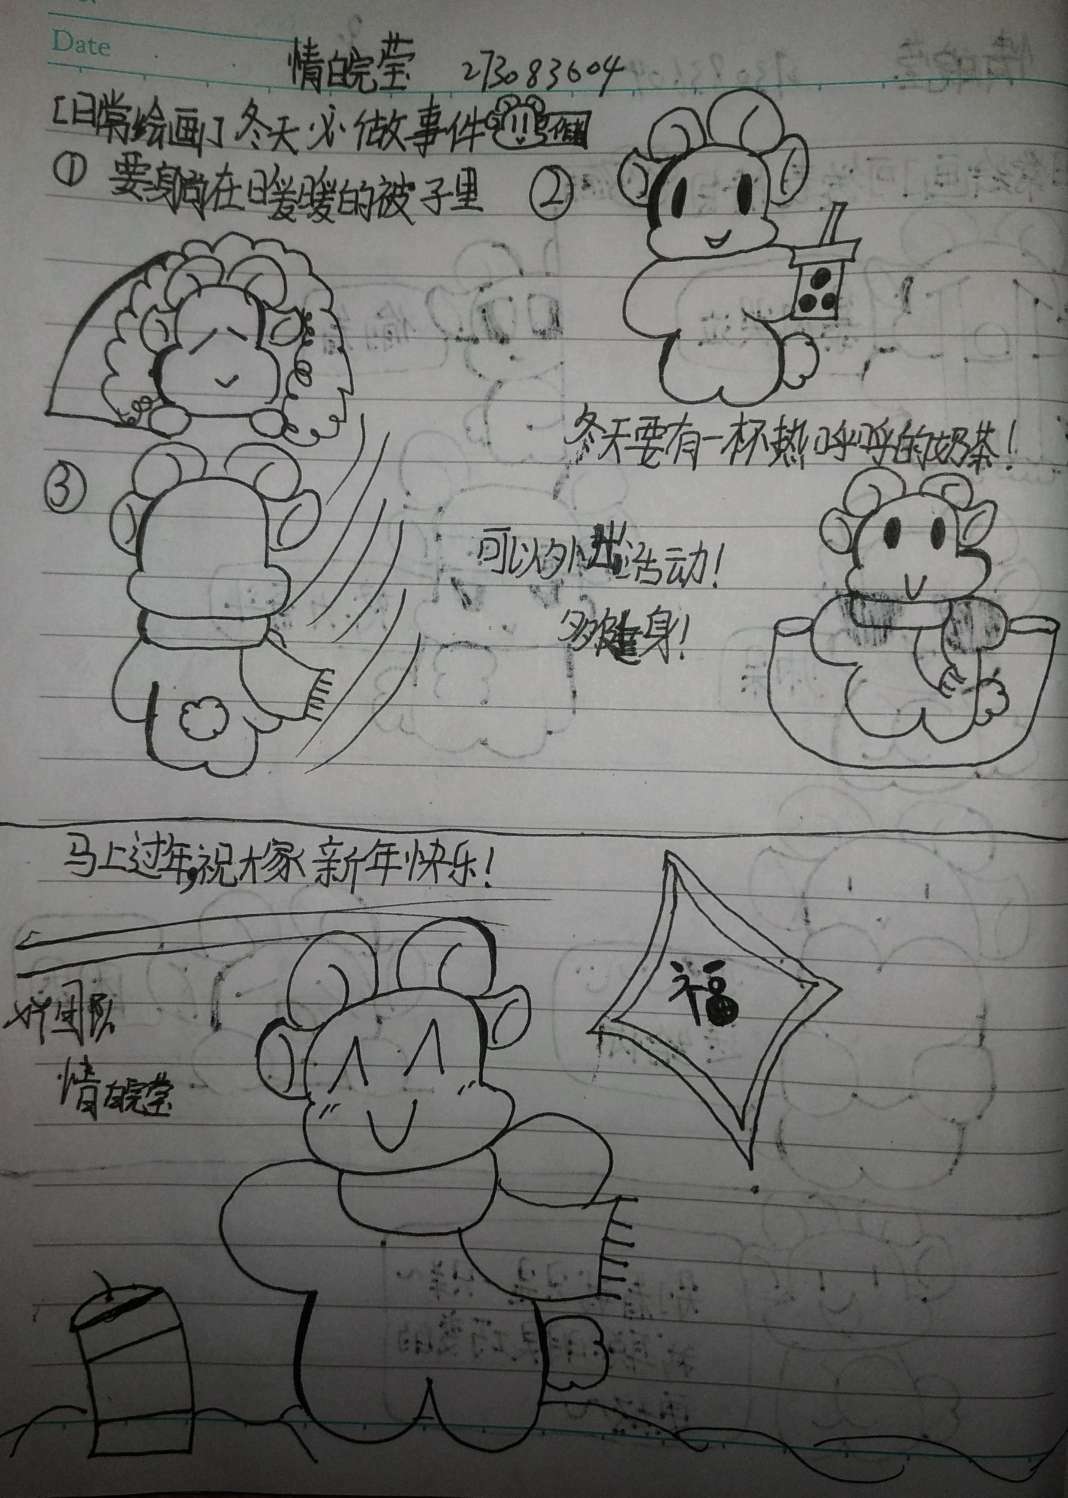 Date
情皖莹 273083604
[日常绘画」冬天必做故事件
① 要身尚在暖暖的被子里
②
冬天要有一杯热呼呼的奶茶！
③
可以外出活动！
多健身！
马上过年,祝大家新年快乐！
福
团队
情皖莹